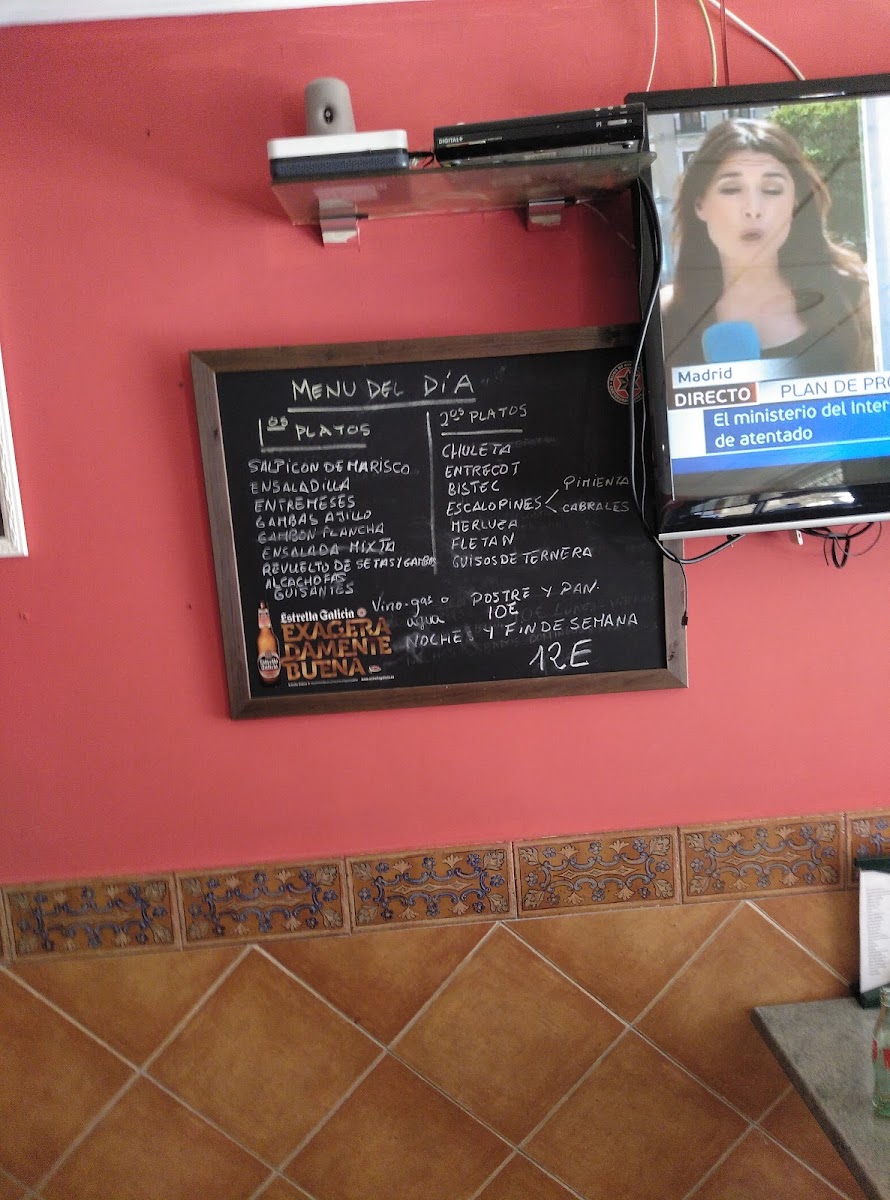 DIGITAL+
Madrid
DIRECTO PLAN DE PRO
El ministerio del Inter
de atentado
MENU DEL DÍA
1os PLATOS
SALPICON DE MARISCO
ENSALADILLA
ENTREMESES
GAMBAS AJILLO
GAMBON PLANCHA
ENSALADA MIXTA
REVUELTO DE SETAS Y GAMBAS
ALCACHOFAS
GUISANTES
2os PLATOS
CHULETA
ENTRECOT
BISTEC
ESCALOPINES PIMIENTA
CABRALES
MERLUZA
FLETAN
GUISOS DE TERNERA
Vino-gas o agua
POSTRE Y PAN.
10E
NOCHE Y FIN DE SEMANA
12E
Estrella Galicia
EXAGERA
DAMENTE
BUENA